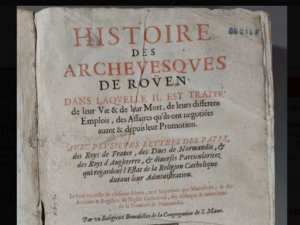 HISTOIRE
DES
ARCHEVESQVES
DE ROVEN.
DANS LAQVELLE IL EST TRAITÉ
de leur Vie & de leur Mort, de leurs differens
Emplois, des Affaires qu'ils ont negotiées
auant & depuis leur Promotion.
AVEC PLVSIEVRS LETTRES DES PAPES,
des Roys de France, des Ducs de Normandie, &
des Roys d'Angleterre, & diuerses Particularitez
qui regardent l'Estat de la Religion Catholique
durant leur Administration.
Par vn Religieux Benedictin de la Congregation de S. Maur.